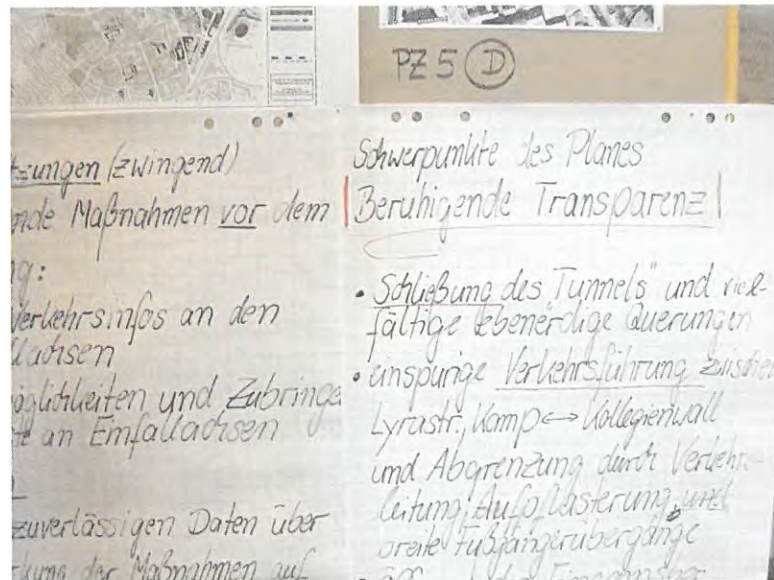 PZ 5 D
tzungen (zwingend)
nde Maßnahmen vor dem
g:
Verkehrsinfos an den
llachsen
öglichkeiten und Zubringe
te an Einfallachsen
zuverlässigen Daten über
rkung der Maßnahmen auf
Schwerpunkte des Planes
Beruhigende Transparenz
• Schließung des Tunnels" und viel-
fältige ebenerdige Querungen
• einspurige Verkehrsführung zwischen
Lyrastr., Kamp ↔ Kollegienwall
und Abgrenzung durch Verkehrs-
leitung, Aufpflasterung und
breite Fußgängerübergänge